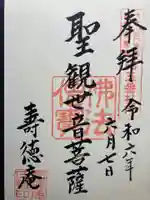 奉拝
令和六年
六月七日
聖観世音菩薩
佛法
僧寶
壽徳庵